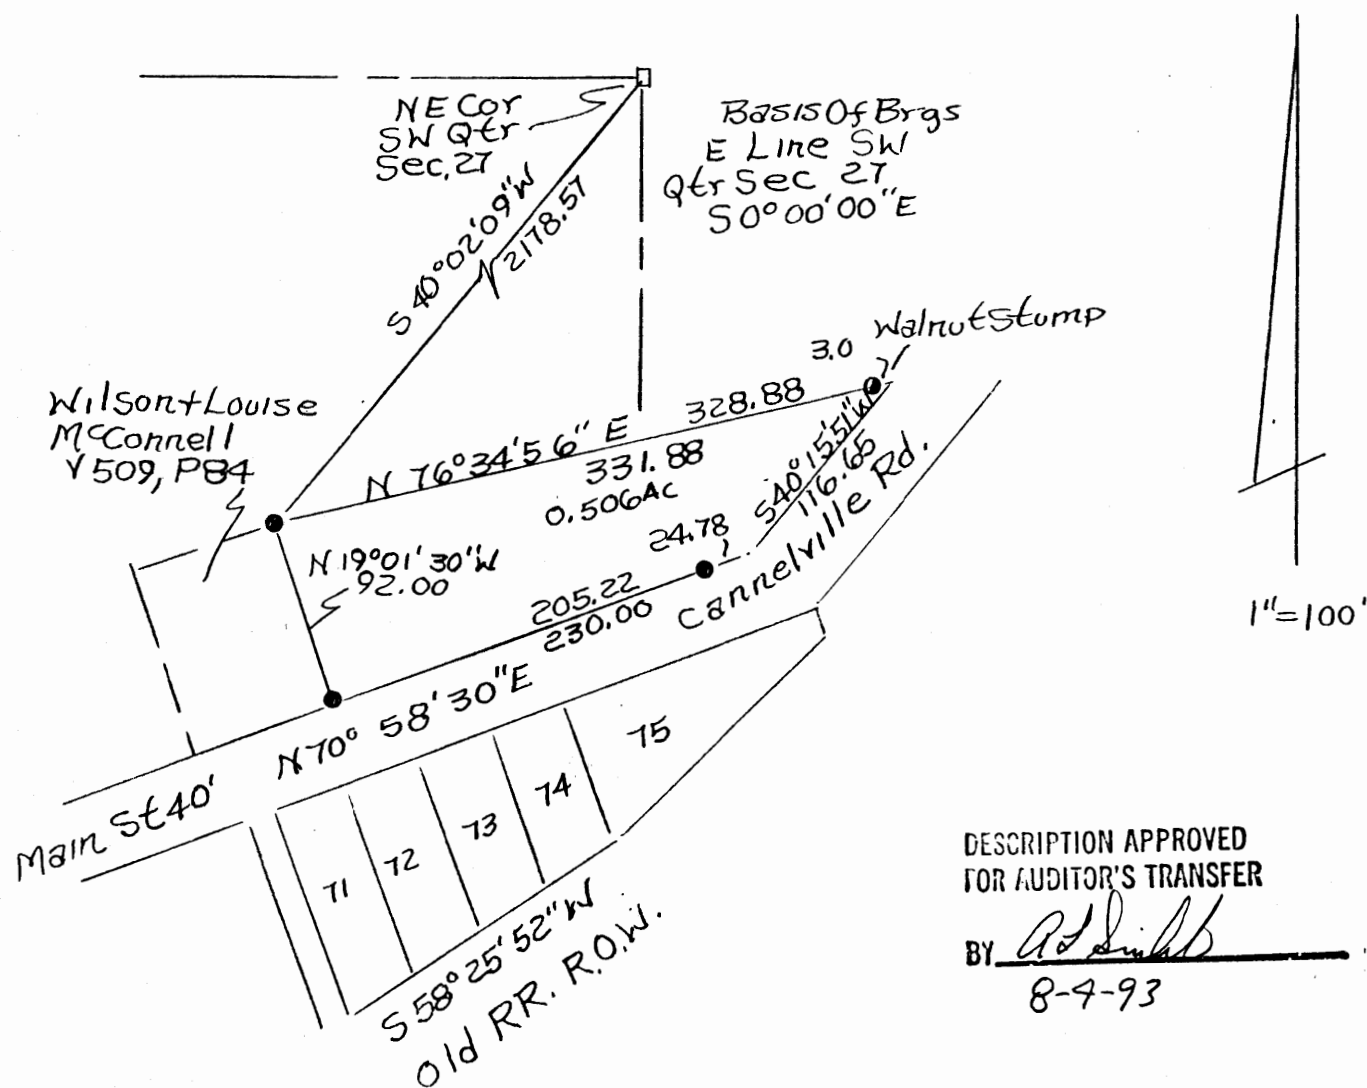 NE Cor
SW Qtr
Sec, 27
Basis Of Brgs
E Line SW
Qtr Sec 27
S 0° 00' 00" E
S 40° 02' 09" W
2178.57
Walnut Stump
3.0
Wilson + Louise
McConnell
V 509, P84
N 76° 34' 56" E
328.88
331.88
0.506 Ac
S 40° 15' 51" W
116.65
24.78
N 19° 01' 30" W
92.00
205.22
230.00
Cannelville Rd.
1" = 100'
N 70° 58' 30" E
Main St 40'
71
72
73
74
75
S 58° 25' 52" W
Old RR. R.O.W.
DESCRIPTION APPROVED
FOR AUDITOR'S TRANSFER
BY
8-4-93